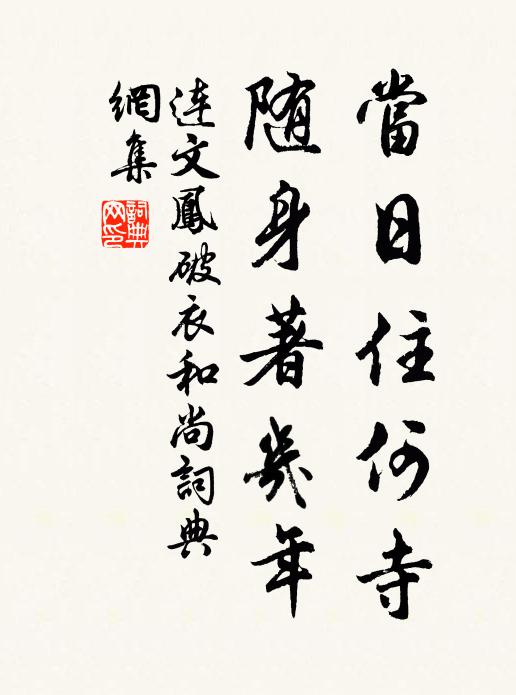 當日住何寺
随身著幾年
連文鳳破衣和尚詞典
網集
詞典
网印